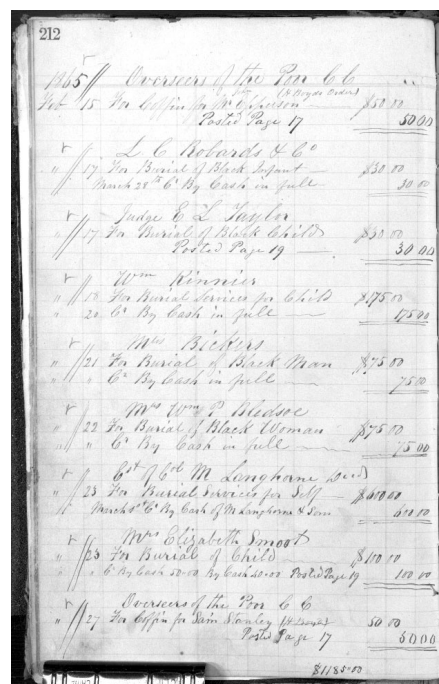 212
1865 Overseers of the Poor C C
Feb 15 For Coffin for Mr Jefferson (H Boyds Order) $50.00
Posted Page 17 50.00
L C Robards & Co
" 17 For Burial of Black Infant $30.00
March 28th Cr By Cash in full 30.00
Judge E L Taylor
" 17 For Burial of Black Child $30.00
Posted Page 19 30.00
Wm Kinnier
" 18 For Burial Services for Child $175.00
" 20 Cr By Cash in full 175.00
Mrs Bickers
" 21 For Burial of Black Man $75.00
" " Cr By Cash in full 75.00
Mrs Wm P Bledsoe
" 22 For Burial of Black Woman $75.00
" " Cr By Cash in full 75.00
Est of Col M Langhorne Decd
" 23 For Burial Services for Self $600.00
March Cr By Cash of M Langhorne & Son 600.00
Mrs Elizabeth Smoot
" 23 For Burial of Child $100.00
" " Cr By Cash 50.00 By Cash 50.00 Posted Page 19 100.00
Overseers of the Poor C C
" 27 For Coffin for Sam Stanley 50.00
Posted Page 17 50.00
$1185.00